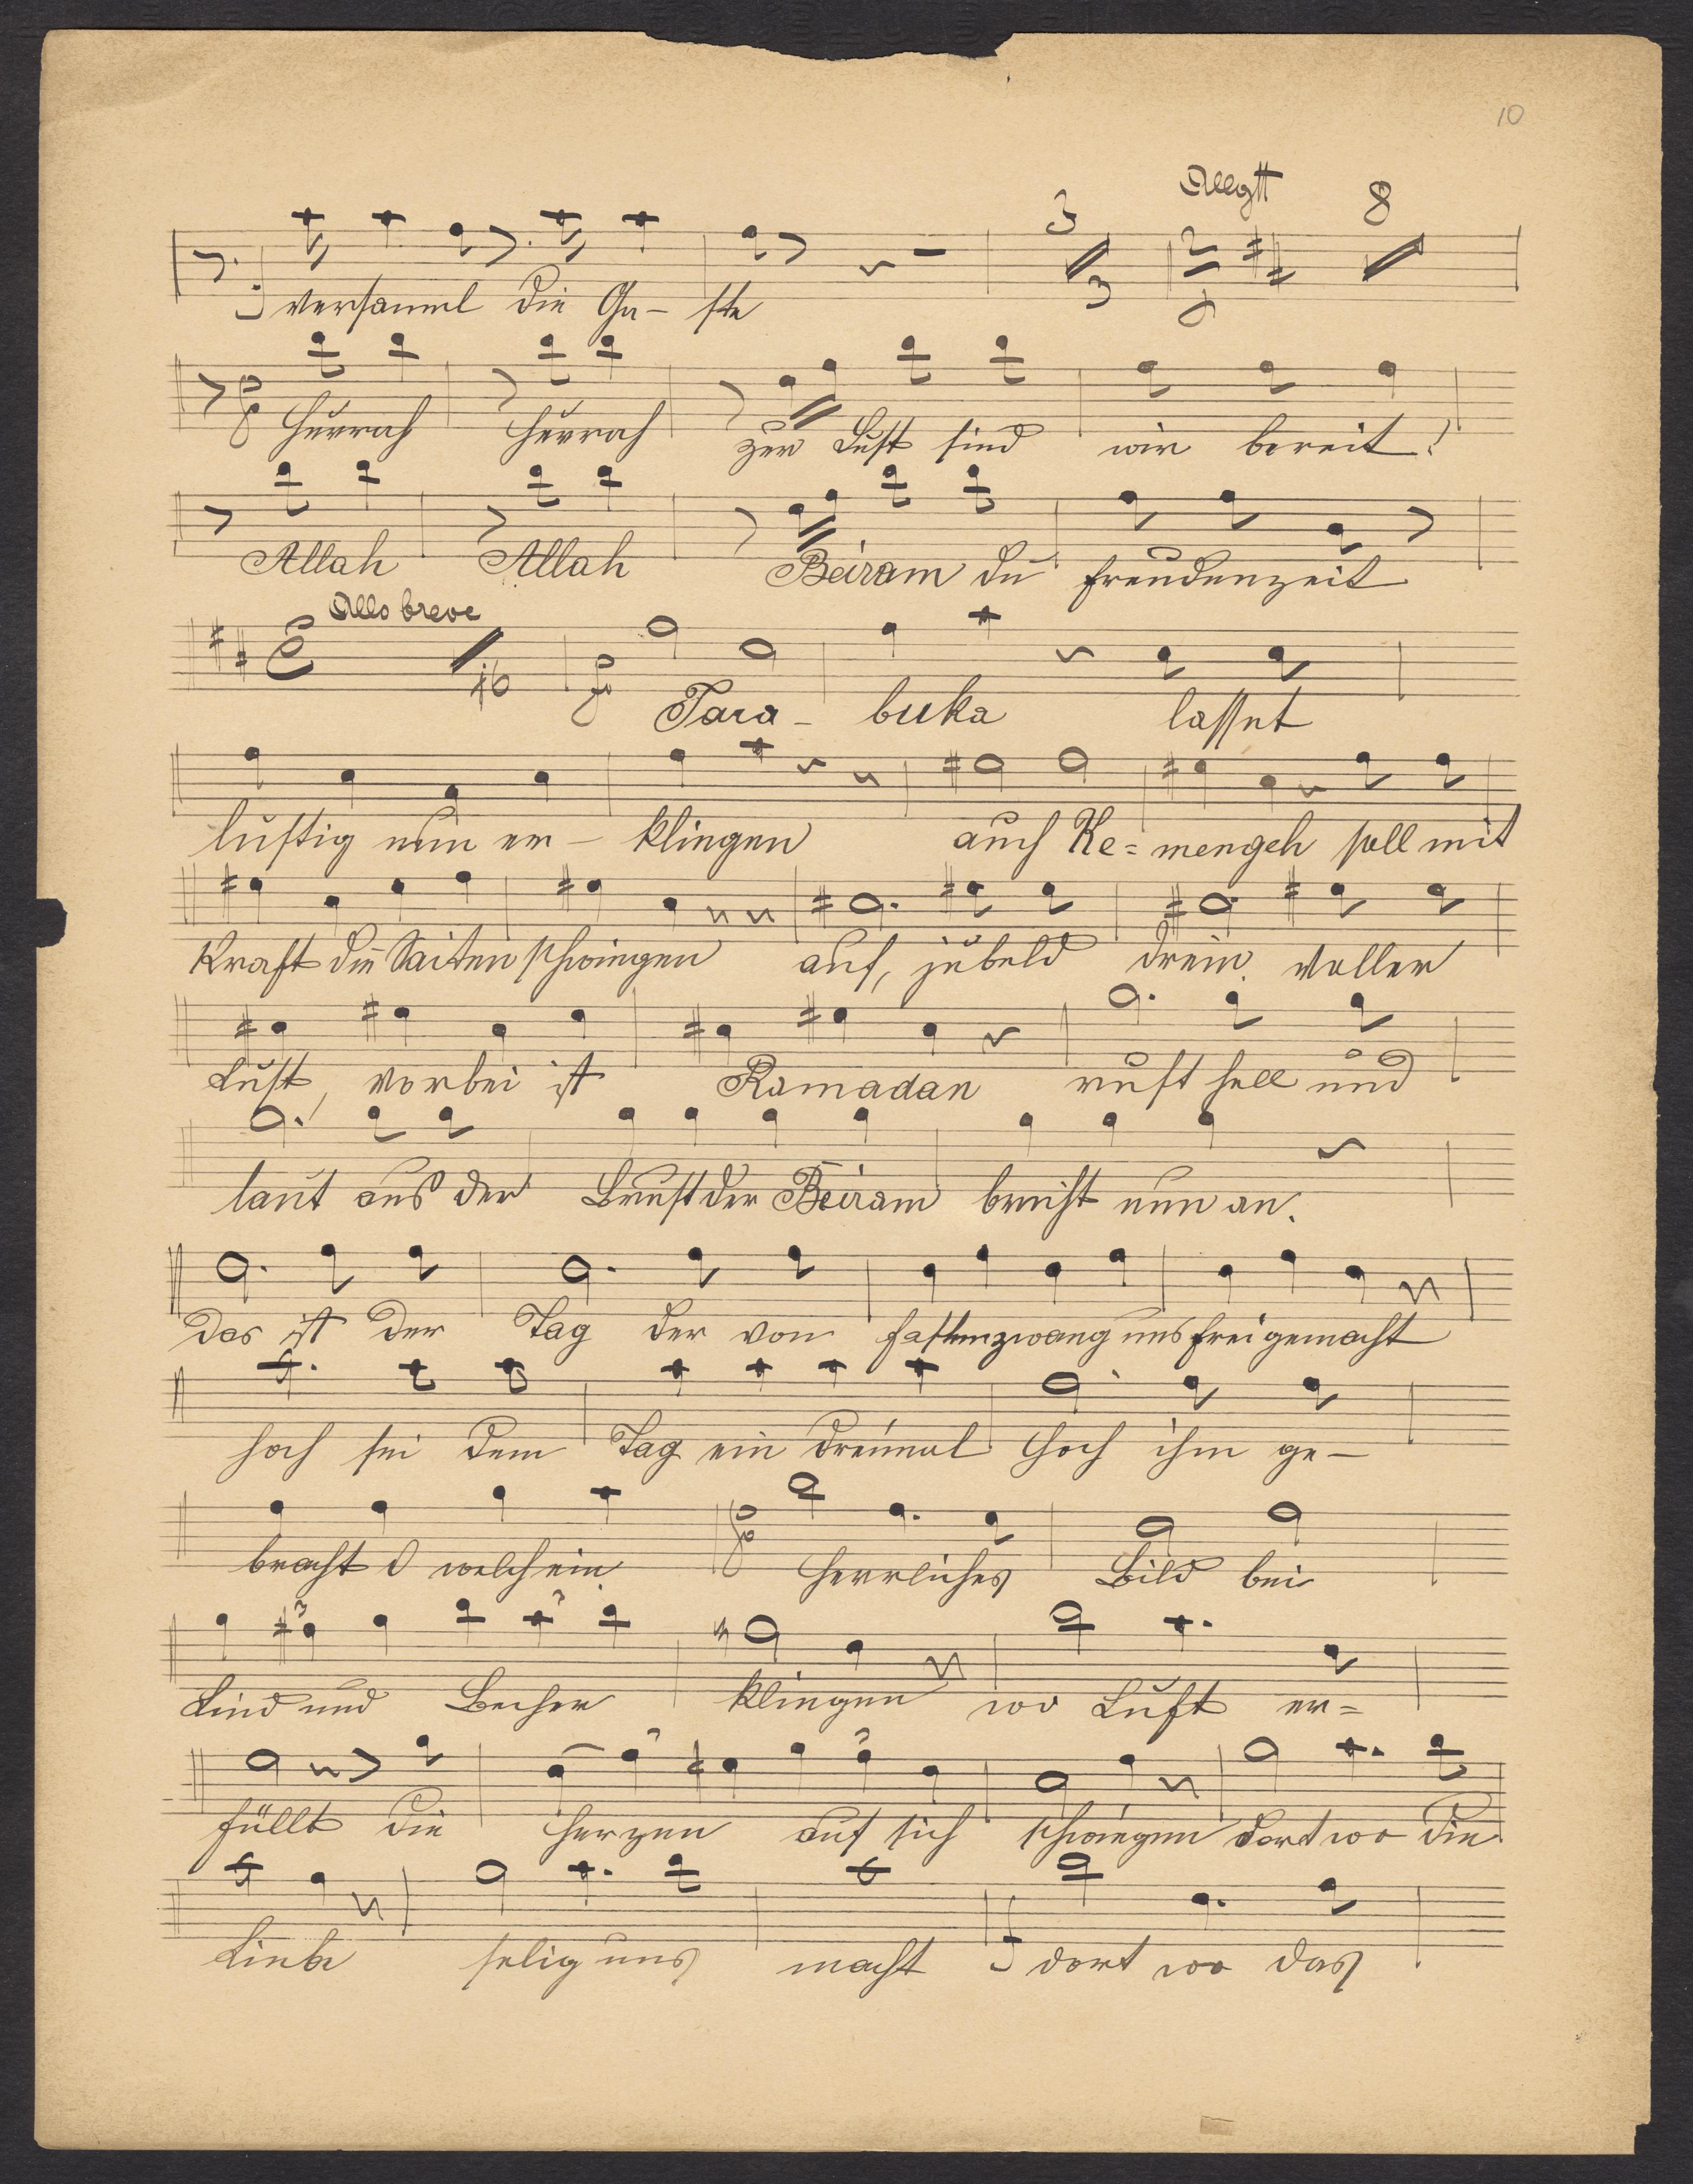 10
Allgtt
3 8
3
versaml die Gä- ste
hurrah hurrah zur Lust sind wir bereit!
Allah Allah Beiram du freudenzeit
Allo breve
16
Tara- buka lasset
lustig nun er- klingen auch Ke= mengeh soll mit
Kraft die Saiten schwingen auf, jubeld drein voller
Lust, vorbei ist Ramadan ruft hell und
laut aus der Brust der Beiram bricht nun an.
das ist der Tag der von fastenzwang uns frei gemacht
hoch sei dem Tag ein dreimal hoch ihm ge-
bracht O welch ein herrliches Bild bei
Lied und Becher klingen wo Lust er=
füllt die herzen auf sich schwingen dort wo die
Liebe selig uns macht dort wo das